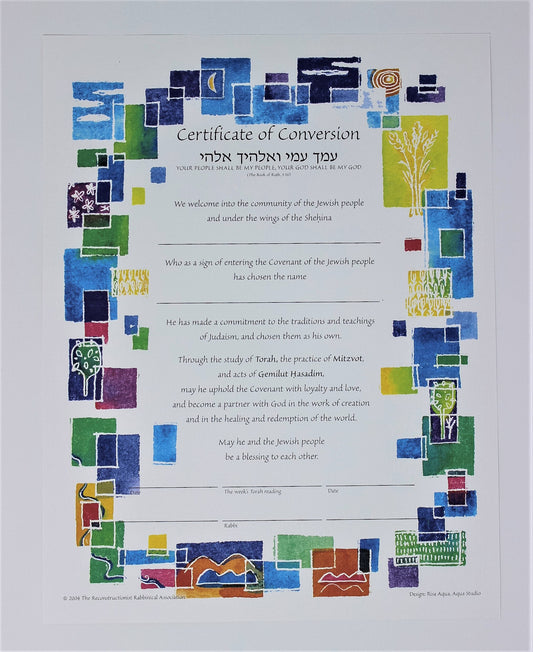 Certificate of Conversion
עמך עמי ואלהיך אלהי
YOUR PEOPLE SHALL BE MY PEOPLE, YOUR GOD SHALL BE MY GOD
(The Book of Ruth, 1:16)
We welcome into the community of the Jewish people
and under the wings of the Sheḥina
Who as a sign of entering the Covenant of the Jewish people
has chosen the name
He has made a commitment to the traditions and teachings
of Judaism, and chosen them as his own.
Through the study of Torah, the practice of Mitzvot,
and acts of Gemilut Ḥasadim,
may he uphold the Covenant with loyalty and love,
and become a partner with God in the work of creation
and in the healing and redemption of the world.
May he and the Jewish people
be a blessing to each other.
The week's Torah reading Date
Rabbi
© 2004 The Reconstructionist Rabbinical Association
Design: Rosa Aqua, Aqua Studio